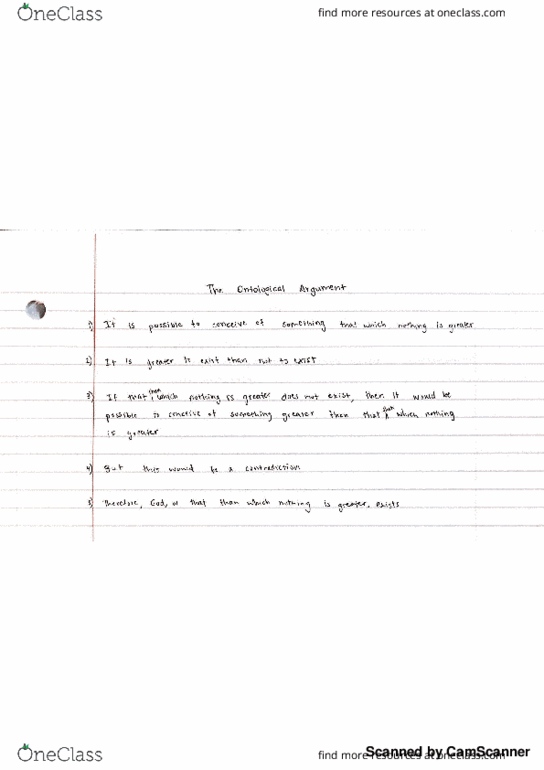 OneClass
find more resources at oneclass.com
The Ontological Argument
1) It is possible to conceive of something that which nothing is greater
2) It is greater to exist than not to exist
3) If that than which nothing is greater does not exist, then it would be
possible to conceive of something greater then that than which nothing
is greater
4) But this would be a contradiction
5) Therefore, God, or that than which nothing is greater, exists
OneClass
find more resources at oneclass.com
Scanned by CamScanner